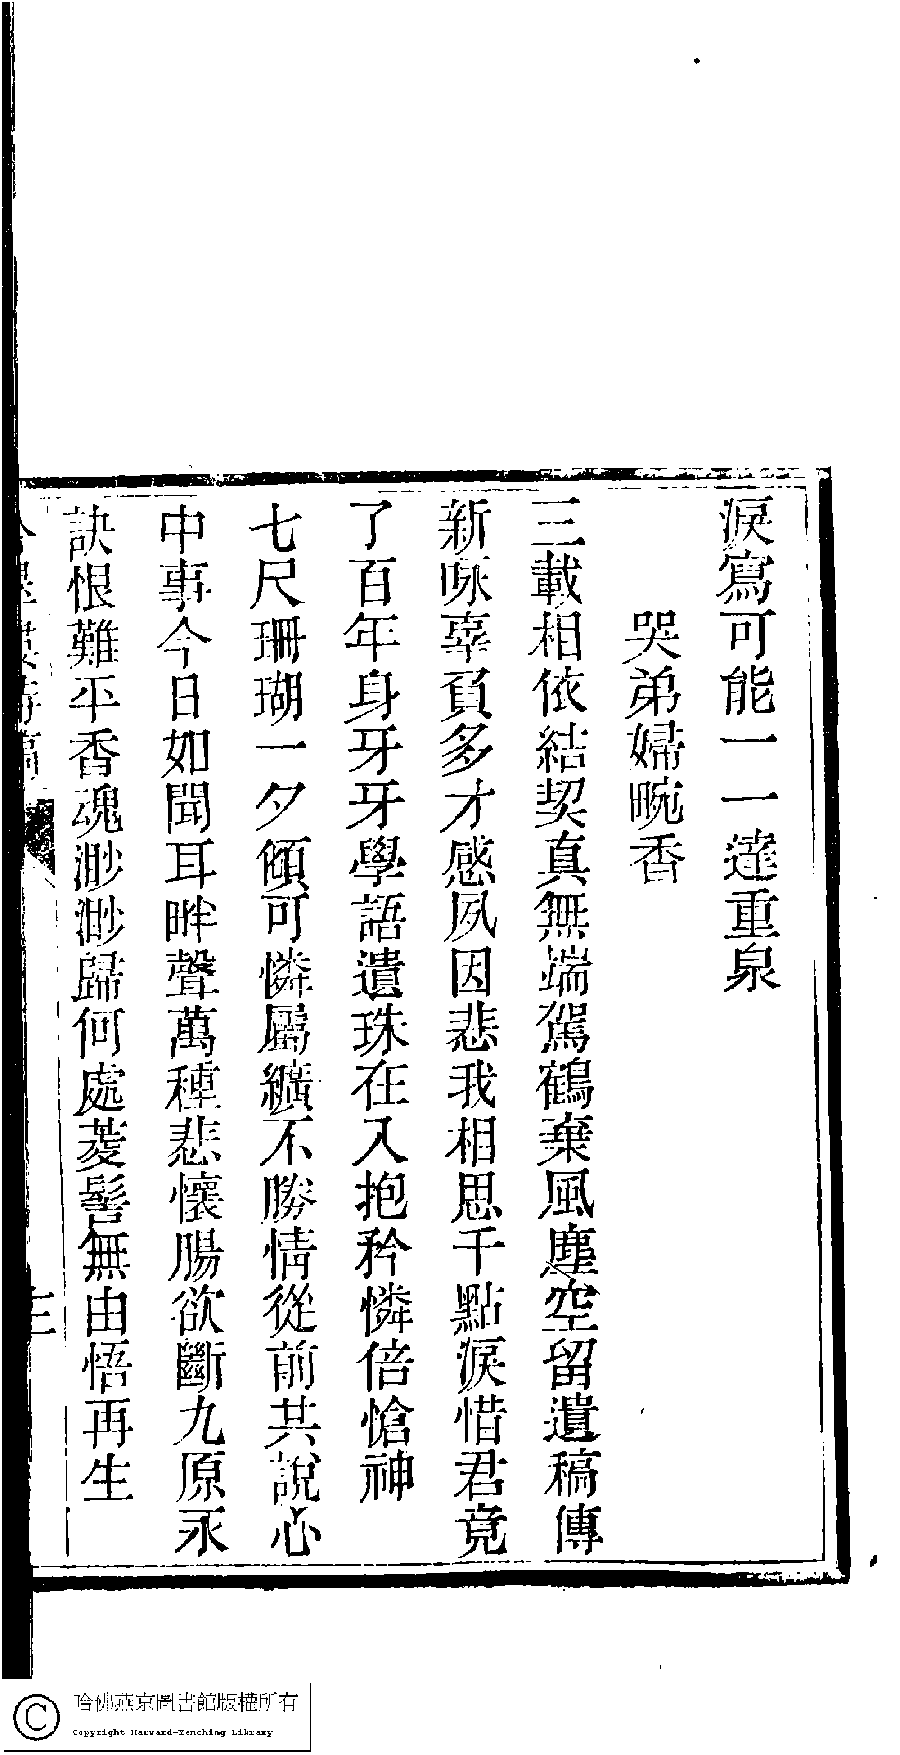 淚寫可能一一達重泉
哭弟婦畹香
三載相依結契真無端駕鶴棄風塵空留遺稿傳
新咏辜負多才感夙因悲我相思千點淚惜君竟
了百年身牙牙學語遺珠在入抱矜憐倍愴神
七尺珊瑚一夕傾可憐屬纊不勝情從前共說心
中事今日如聞耳畔聲萬種悲懷腸欲斷九原永
訣恨難平香魂渺渺歸何處菱髻無由悟再生
三
哈佛燕京圖書館版權所有
Copyright Harvard-Yenching Library